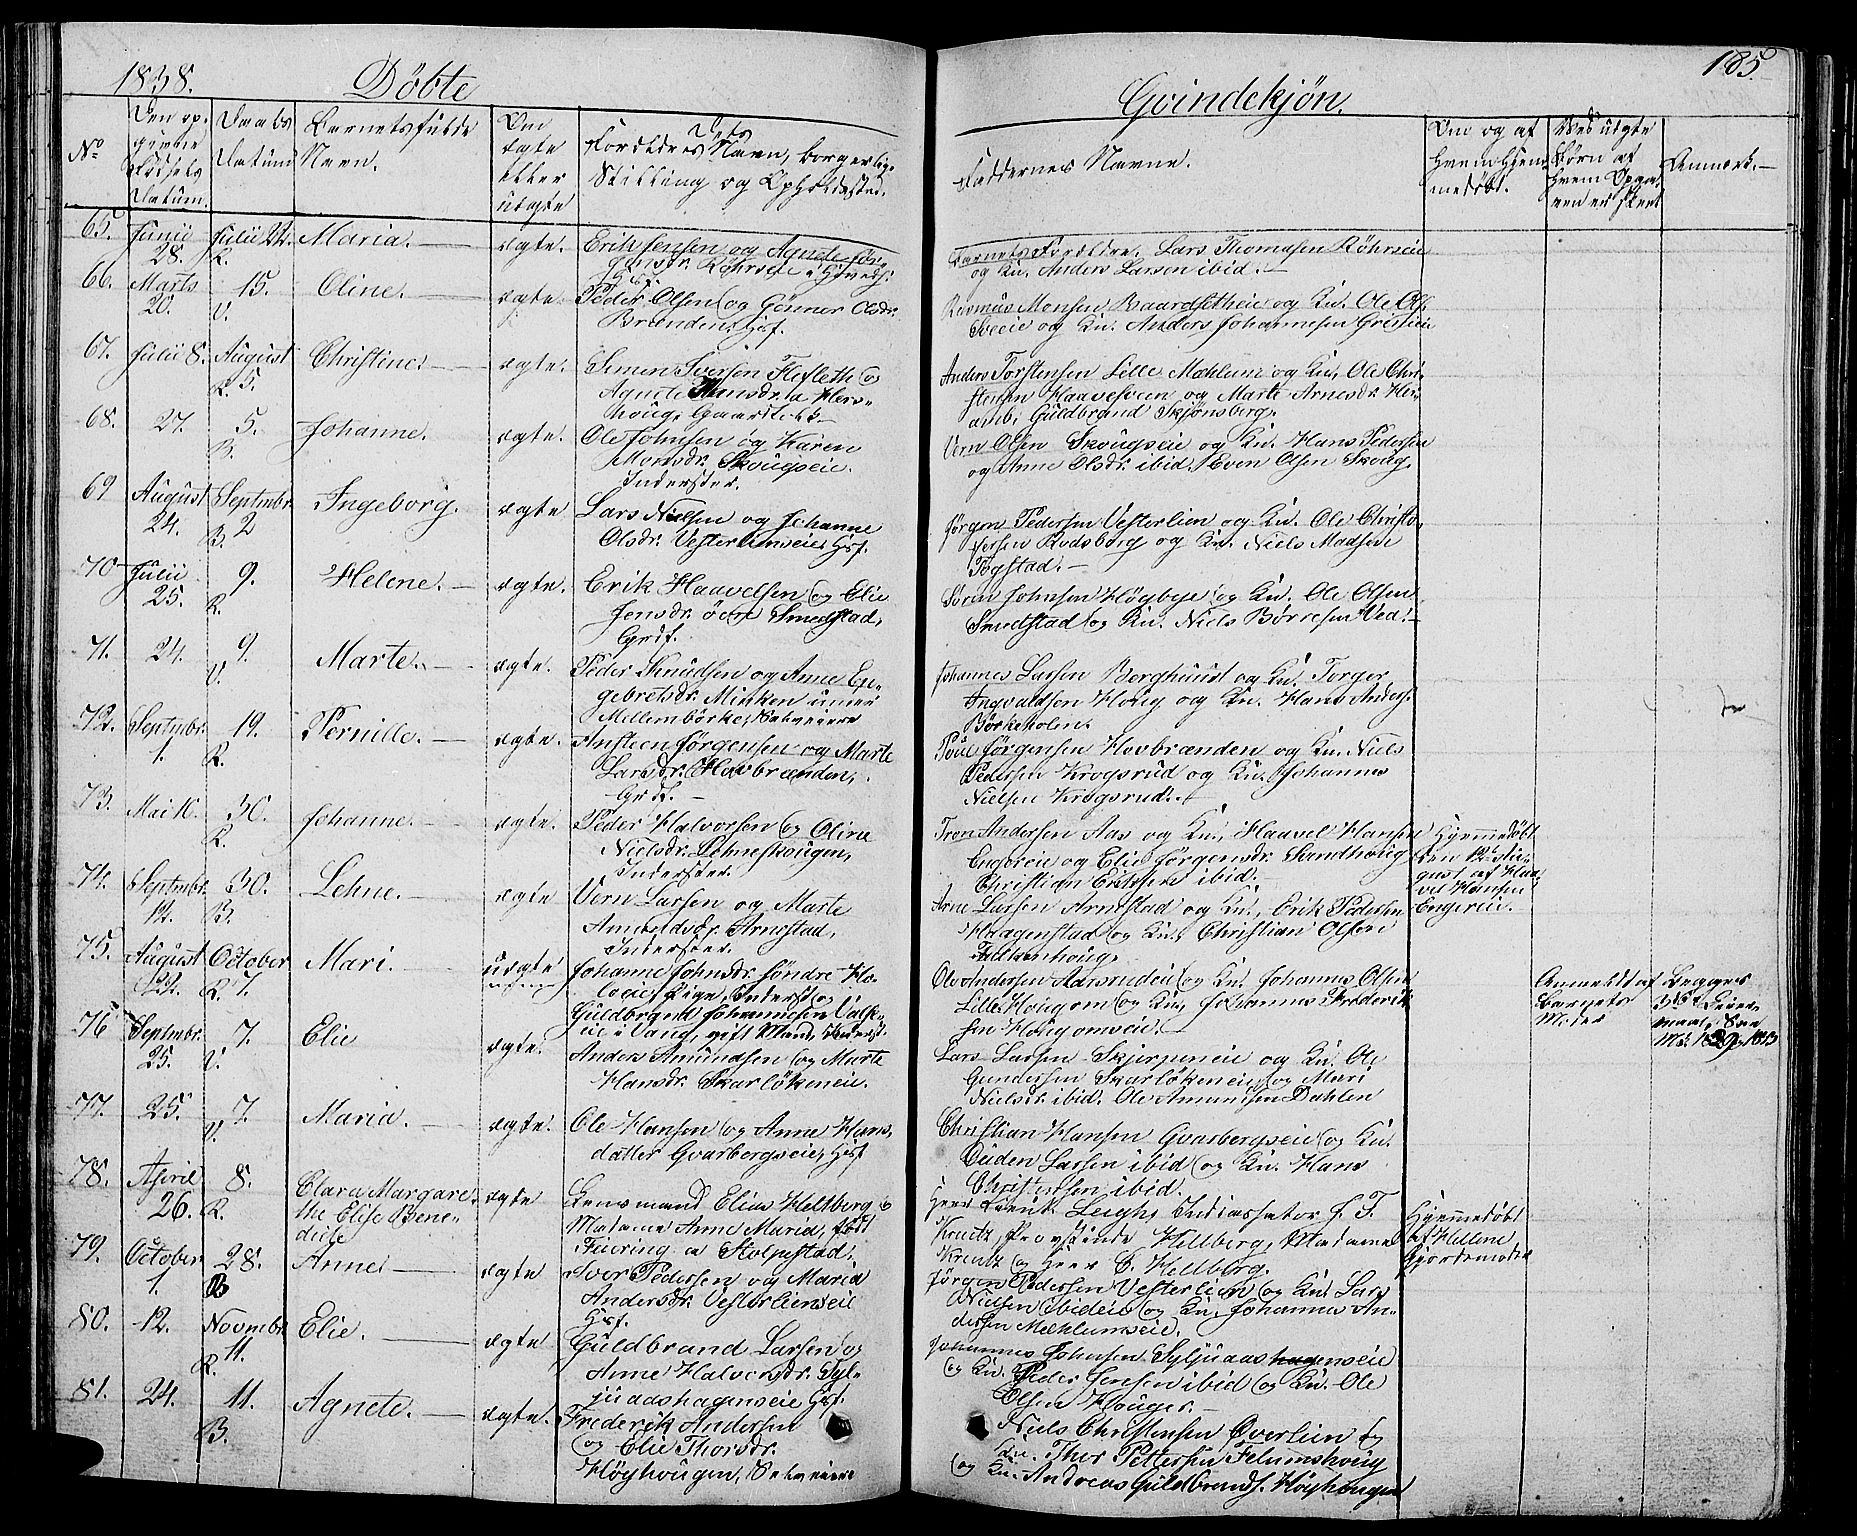 1838. Döbte
Qvindekjön. 185
No
Den op-
givne
Födsels
Datum.
Daabs
Datum
Barnets fulde
Navn.
Om
ægte
eller
uægte
Dets
Forældres Navn, borgerlige
Stilling og Opholdssted.
Faddernes Navne.
Om og af
hvem hjem-
medöbt.
Ved uægte
Börn af
hvem Opga-
ven er skeet
Anmærk.
65. Junii 28. Julii 22. R. Maria. ægte.
Erik Jensen og Agnete
Jensdr. Röhrseie
Barnets Forældre. Lars Thomasen Röhrseie
og Kn. Anders Larsen ibid.
66. Marts 20. 15. V. Oline. ægte.
Peder Olsen og Gönner Olsdr.
Brænden, Hsf.
Rasmus Monsen Baardsetheie og Kn. Ole Ols.
Sveeie og Kn. Anders Johannesen Gristieie
67. Julii 8. August 5. R. Christine. ægte.
Simen Iversen Flesleth og
Agnete Hansdr. a Hers-
houg, Gaardbr.
Anders Torstensen Lille Mæhlum og Kn. Ole Chri-
stensen Haavelseien og Marte Arnesdr.
Guldbrand Skjönsberg.
68. 27. 5. B. Johanne. ægte.
Ole Johnsen og Karen
Monsdr. Skougseie.
Inderster.
Vern Olsen Skougseie og Kn. Hans Pedersen
og Anne Olsdr. ibid. Even Olsen Skoug.
69 August 24. Septmbr. 2 B. Ingeborg. ægte.
Lars Nielsen og Johanne
Olsdr. Vesterlienseie, Hsf.
Jörgen Pedersen Vesterlien og Kn. Ole Christo-
fersen Rodsborg og Kn. Niels Madsen
Togstad.
70 Julii 25. 9. R. Helene. ægte.
Erik Haavelsen og Elie
Jensdr. övre Smedstad,
Grdf.
Sören Johnsen Höybye og Kn. Ole Olsen
Smedstad og Kn. Niels Börresen Ved.
71. 24. 9. V. Marte. ægte.
Peder Knudsen og Anne En-
gebretsdr. Minken under
Mellembörke, Selveiere
Johannes Larsen Berghuust og Kn. Torger
Ingvaldsen Houg og Kn. Hans Anders.
Börkeholen.
72. Septmbr. 1. 19. R. Pernille. ægte.
Ansteen Jörgensen og Marte
Larsdr. Hovbrænden,
Grdf.
Povel Jörgensen Hovbrænden og Kn. Niels
Pedersen Krogsrud og Kn. Johannes
Nielsen Krogsrud.
73. Mai 10. 30. R. Johanne. ægte.
Peder Halvorsen og Oline
Nielsdr. Lehneskougen,
Inderster.
Tron Andersen Aas og Kn., Haavel Hansen
Engereie og Elie Jörgensdr. Sandhoug
Christian Eriksen ibid.
Hjemmedöbt
den 12 Au-
gust af Haa-
vel Hansen
Engereie.
74. Septmbr. 12. 30. B. Lehne. ægte
Vern Larsen og Marte
Amundsdr. Arnestad,
Inderster.
Arne Larsen Arnestad og Kn., Erik Pedersen
Haagenstad og Kn. Christian Olsen
Falkenhoug.
75. August 22. October 7. R. Mari. uægte
Johanne Johnsdr. söndre Ho-
loeie, Pige, Inderst og
Guldbrand Johannesen
i Vang, gift Mand, Inderst.
Ole Andersen Aarsrudeie og Kn. Johannes Olsen
Lille Hougom og Kn., Johannes Frederik-
sen Hougomseie.
Anmeldt af
Barnets
Moder
Begges
3die Leier-
maal.
76 Septmbr. 25. 7. V. Elie ægte.
Anders Amundsen og Marte
Hansdr. Skarlökeneie.
Lars Larsen Skjerpeneie og Kn. Ole
Gundersen Skarlökeneie og Mari
Nielsdr. ibid. Ole Amundsen Dahlen
77. 25. 7. V. Maria. ægte.
Ole Hansen og Anne Hans-
datter Gvarbergseie, Hsf.
Christian Hansen Gvarbergseie og Kn.
Ouden Larsen ibid og Kn. Hans
Christensen ibid.
78. April 26. 8. R. Clara Margare-
the Elise Bene-
dicte ægte
Lensmand Elias Heltberg og
Madame Anne Maria, född
Feiring a Stolpestad.
Herr Lieut. Leigh, Indiassator J. F.
Kreutz, Provstinde Heltberg, Madame
Kreutz og Herr C. Heltberg.
Hjemmedöbt
af Hellene
Gjordemoder
79. October 1. 28. B Anne. ægte
Iver Pedersen og Maria
Andersdr. Vesterlienseie
Hsf.
Jörgen Pedersen Vesterlien og Kn. Lars
Nielsen ibideie og Kn. Johannes An-
dersen Mæhlumseie.
80. 12. Novmbr. 11. R. Elie. ægte
Guldbrand Larsen og
Anne Halvorsdr. Syl-
juaashagenseie Hsf.
Johannes Johnsen Syljuaashagenseie
og Kn. Peder Jensen ibid og Kn. Ole
Olsen Houger.
81. 24. 11. B. Agnete. ægte.
Frederik Andersen
og Elie Thorsdr.
Höyhougen, Selveiere
Niels Christensen Överlien og
Kn. Thor Pettersen Felumshoug
og Kn. Andreas Guldbrands. Höyhougen